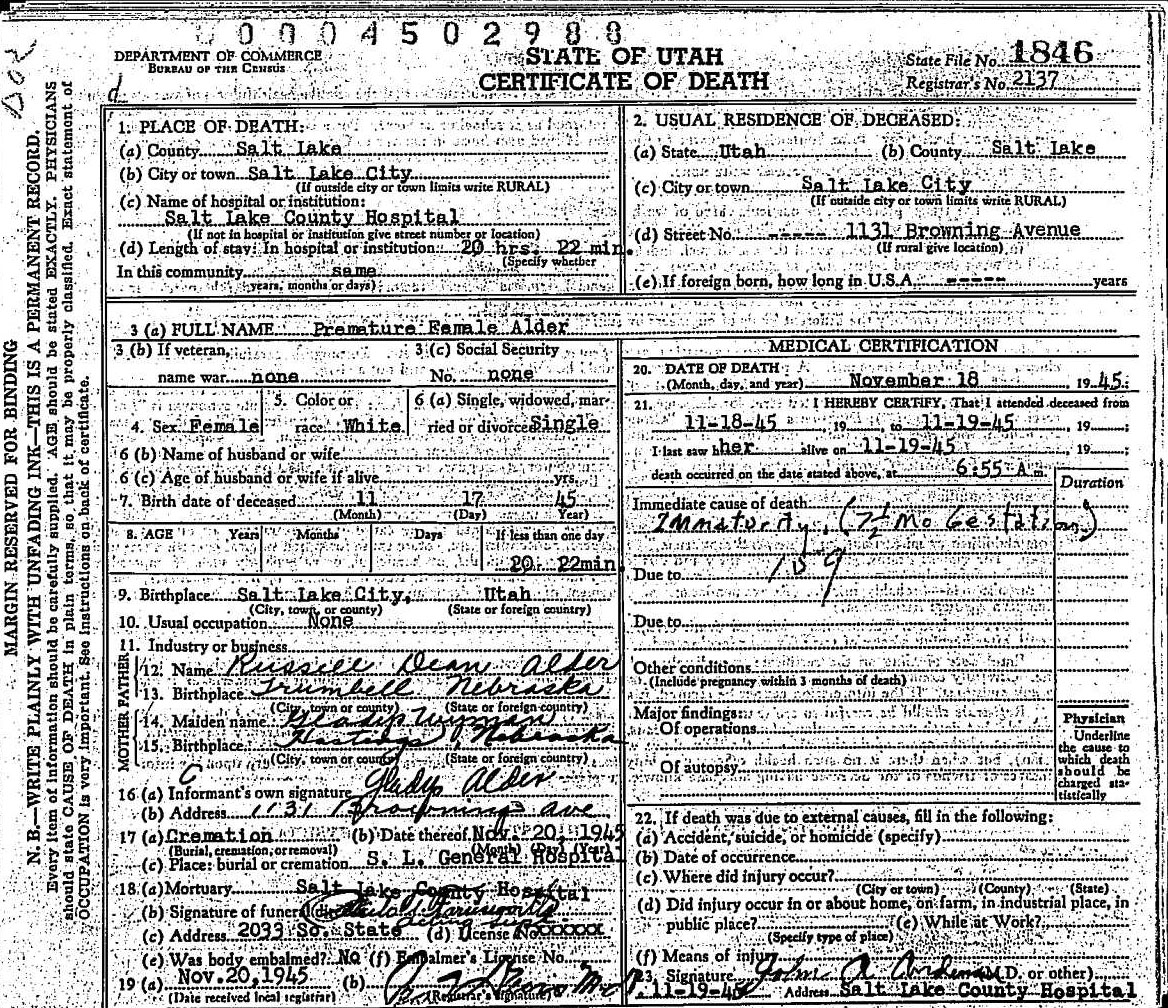 0004502988
DEPARTMENT OF COMMERCE
BUREAU OF THE CENSUS
STATE OF UTAH
CERTIFICATE OF DEATH
State File No. 1846
Registrar's No. 2137
d
MARGIN RESERVED FOR BINDING
N. B.—WRITE PLAINLY WITH UNFADING INK—THIS IS A PERMANENT RECORD.
Every item of information should be carefully supplied. AGE should be stated EXACTLY. PHYSICIANS
should state CAUSE OF DEATH in plain terms, so that it may be properly classified. Exact statement of
OCCUPATION is very important. See instructions on back of certificate.
1. PLACE OF DEATH:
(a) County Salt Lake
(b) City or town Salt Lake City
(If outside city or town limits write RURAL)
(c) Name of hospital or institution:
Salt Lake County Hospital
(If not in hospital or institution give street number or location)
(d) Length of stay: In hospital or institution 20 hrs. 22 min.
(Specify whether
In this community same
years, months or days)
2. USUAL RESIDENCE OF DECEASED:
(a) State Utah (b) County Salt Lake
(c) City or town Salt Lake City
(If outside city or town limits write RURAL)
(d) Street No. ----- 1131 Browning Avenue
(If rural give location)
(e) If foreign born, how long in U.S.A. ----- years
3 (a) FULL NAME Premature Female Alder
3 (b) If veteran, 3 (c) Social Security
name war none No. none
4. Sex Female 5. Color or race White 6 (a) Single, widowed, married or divorced Single
6 (b) Name of husband or wife
6 (c) Age of husband or wife if alive yrs.
7. Birth date of deceased 11 17 45
(Month) (Day) Year)
8. AGE Years Months Days If less than one day
20 22min.
9. Birthplace Salt Lake City, Utah
(City, town, or county) (State or foreign country)
10. Usual occupation None
11. Industry or business
FATHER
12. Name Russell Dean Alder
13. Birthplace Trumbell Nebraska
(City, town or county) (State or foreign country)
MOTHER
14. Maiden name Gladys Wyman
15. Birthplace Hastings, Nebraska
(City, town or county) (State or foreign country)
16 (a) Informant's own signature Gladys Alder
(b) Address 1131 Browning Ave
17 (a) Cremation (b) Date thereof Nov. 20, 1945
(Burial, cremation, or removal) (Month) (Day) (Year)
(c) Place: burial or cremation S. L. General Hospital
18 (a) Mortuary Salt Lake County Hospital
(b) Signature of funeral
(c) Address 2033 So. State (d) License No. xxxxxx
(e) Was body embalmed? No (f) Embalmer's License No.
19 (a) Nov. 20, 1945 (b)
(Date received local registrar) Registrar's signature)
MEDICAL CERTIFICATION
20. DATE OF DEATH:
(Month, day, and year) November 18 19 45:
21. I HEREBY CERTIFY, That I attended deceased from
11-18-45, 19 , to 11-19-45, 19 ;
I last saw her alive on 11-19-45, 19 ;
death occurred on the date stated above, at 6:55 A m.
Duration
Immediate cause of death
Immaturity (7½ Mo Gestation)
Due to 159
Due to
Other conditions
(Include pregnancy within 3 months of death)
Major findings:
Of operations
Of autopsy
Physician
Underline
the cause to
which death
should be
charged sta-
tistically
22. If death was due to external causes, fill in the following:
(a) Accident, suicide, or homicide (specify)
(b) Date of occurrence
(c) Where did injury occur?
(City or town) (County) (State)
(d) Did injury occur in or about home, on farm, in industrial place, in
public place? (e) While at Work?
(Specify type of place)
(f) Means of injury
23. Signature John A (M.D. or other)
11-19-45 Address Salt Lake County Hospital